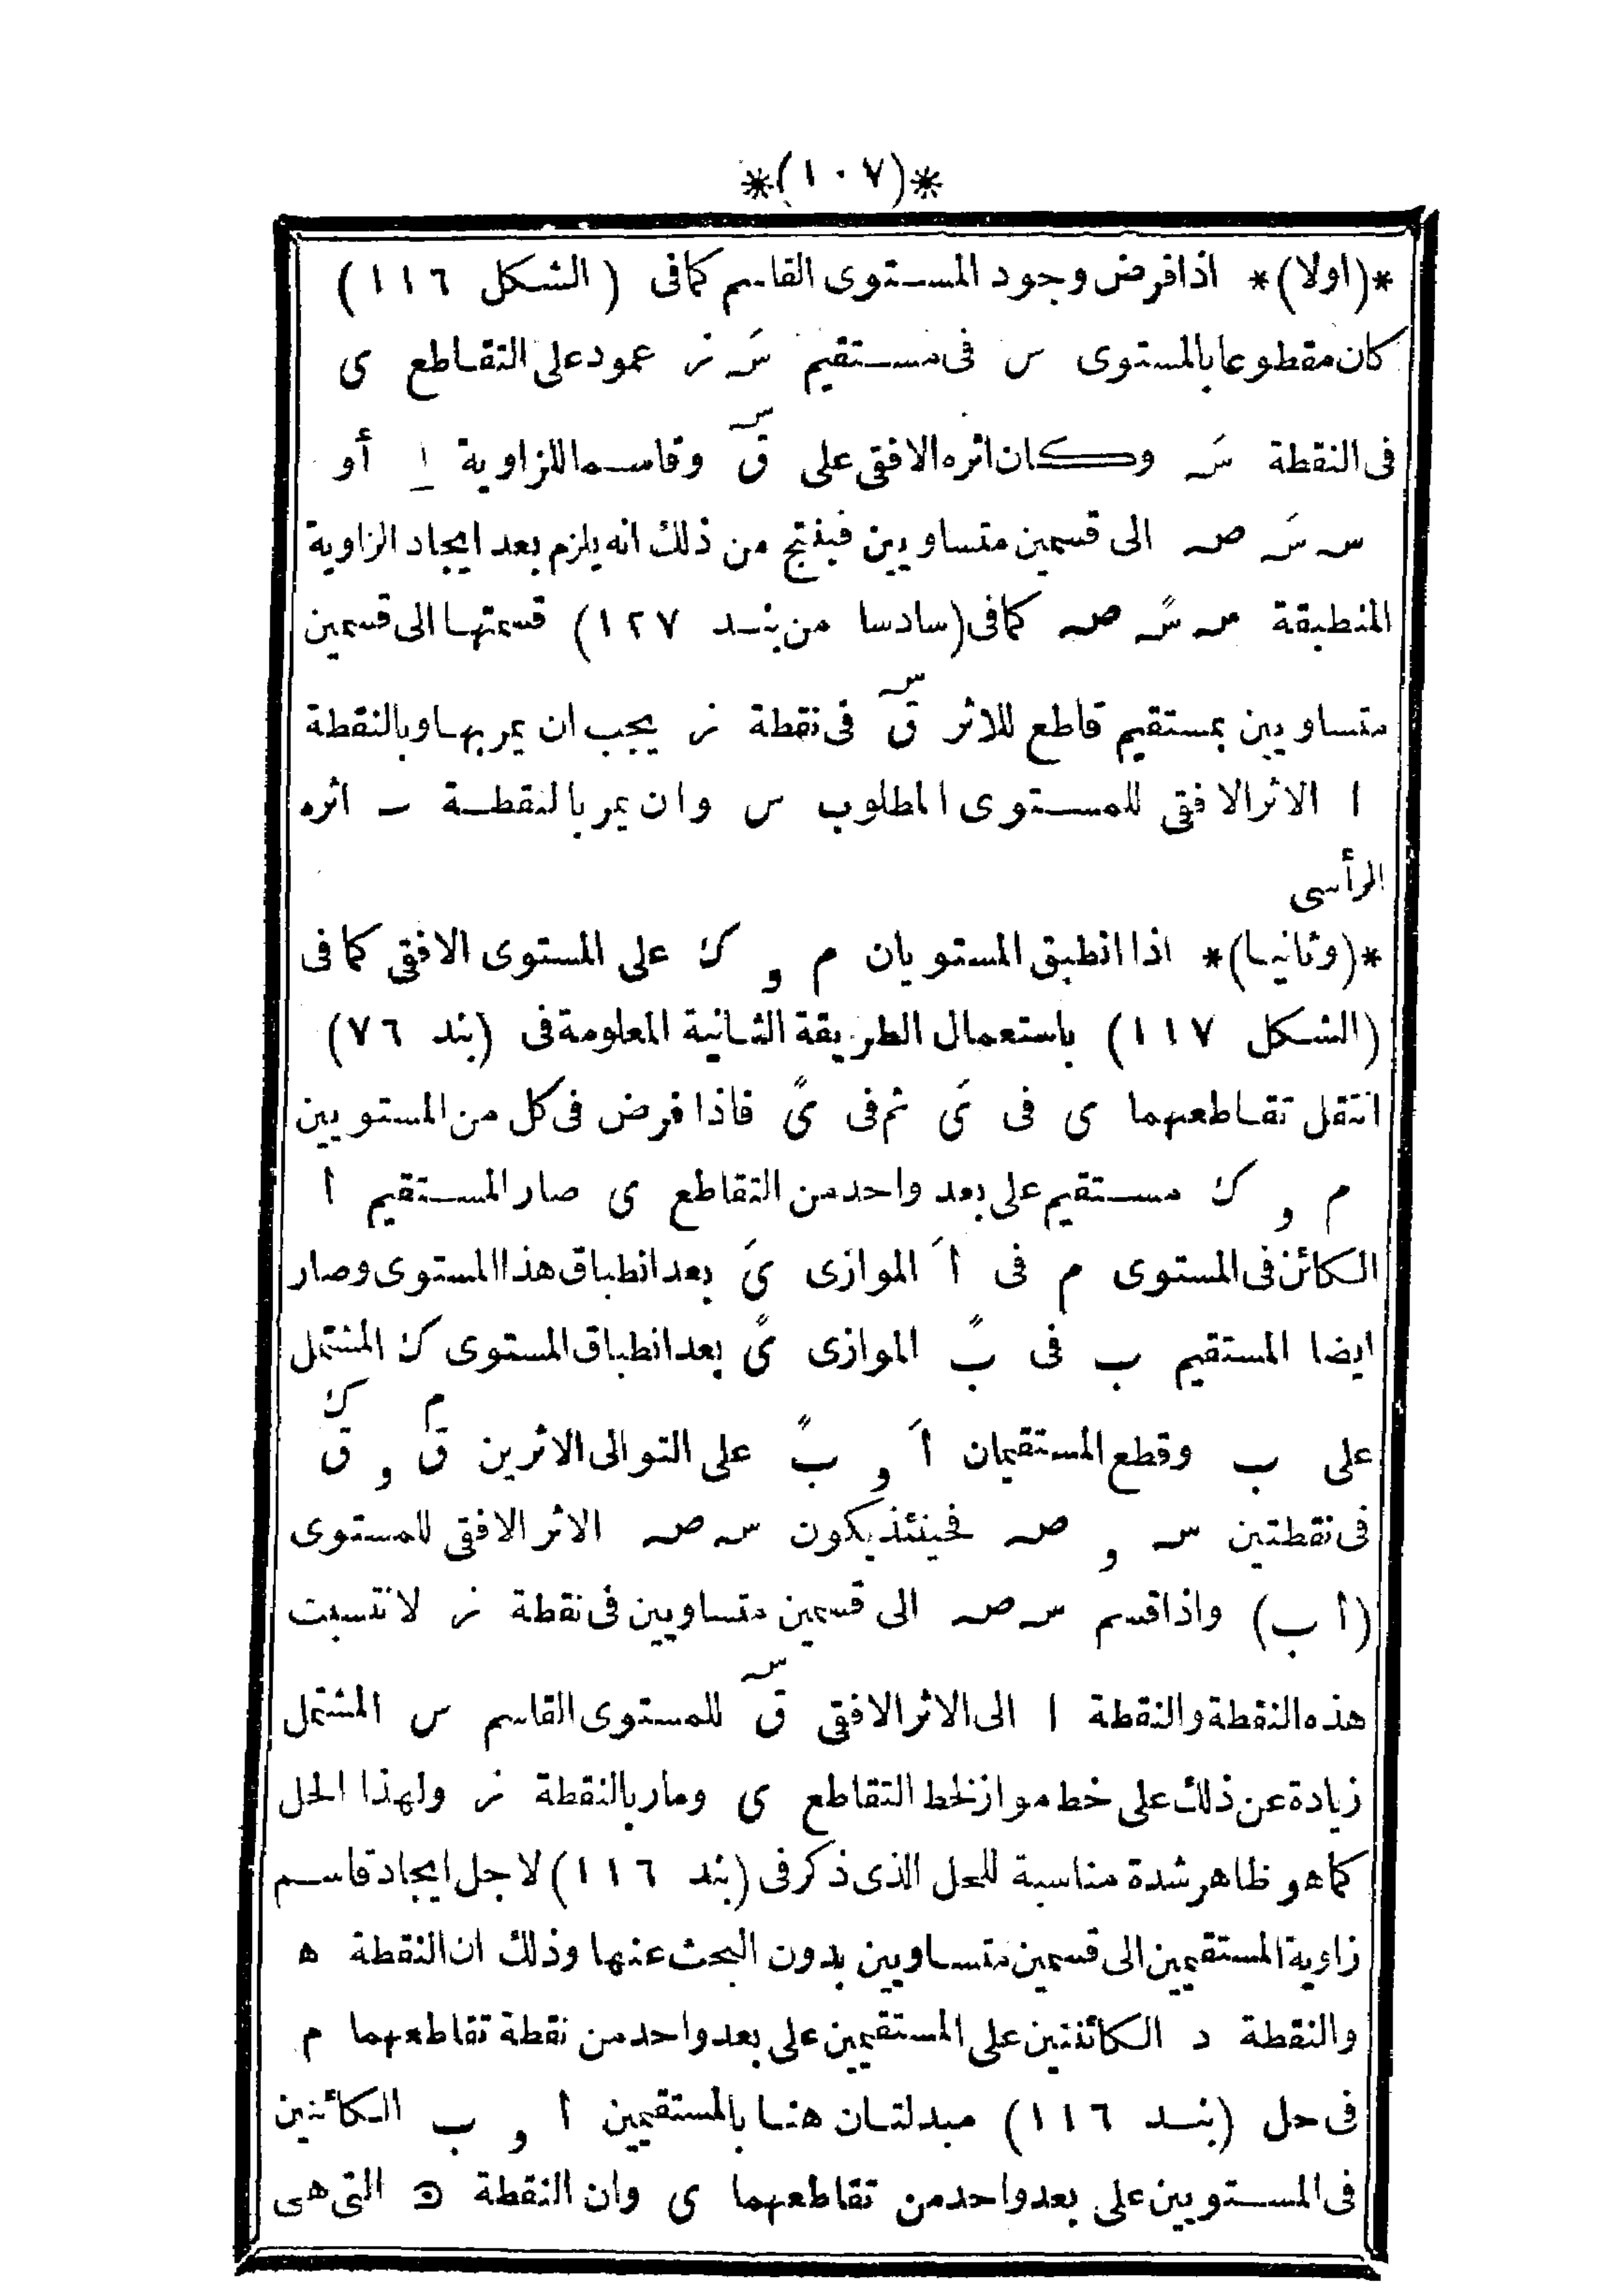 *(١٠٧)*
*(اولا)* اذا فرض وجود المستوى القاسم كما فى (الشكل ١١٦)
كان مقطوعا بالمستوى س فى مستقيم سَـ ز عمود على التقاطع ى
فى النقطة سَـ وكان اثره الافقى على ق س وقاسما للزاوية ا أو
سـ سَـ صـ الى قسمين متساويين فينتج من ذلك انه يلزم بعد ايجاد الزاوية
المنطبقة سـ سًـ صـ كما فى (سادسا من بند ١٢٧) قسمتها الى قسمين
متساويين بمستقيم قاطع للاثر ق س فى نقطة ز يجب ان يمر بها وبالنقطة
ا الاثر الافقى للمستوى المطلوب س وان يمر بالنقطة ـ اثره
الرأسى
*(وثانيا)* اذا انطبق المستويان م و ك على المستوى الافقى كما فى
(الشكل ١١٧) باستعمال الطريقة الثانية المعلومة فى (بند ٧٦)
انتقل تقاطعهما ى فى ىَ ثم فى ىً فاذا فرض فى كل من المستويين
م و ك مستقيم على بعد واحد من التقاطع ى صار المستقيم أ
الكائن فى المستوى م فى أَ الموازى ىَ بعد انطباق هذا المستوى وصار
ايضا المستقيم ب فى بً الموازى ىً بعد انطباق المستوى ك المشتمل
على ب وقطع المستقيمان أَ و بً على التوالى الاثرين ق م و ق ك
فى نقطتين سـ و صـ فحينئذ يكون سـ صـ الاثر الافقى للمستوى
(أ ب) واذا قسم سـ صـ الى قسمين متساويين فى نقطة ز لانتسبت
هذه النقطة والنقطة ا الى الاثر الافقى ق س للمستوى القاسم س المشتمل
زيادة عن ذلك على خط مواز لخط التقاطع ى ومار بالنقطة ز ولهذا الحل
كما هو ظاهر شدة مناسبة للحل الذى ذكر فى (بند ١١٦) لاجل ايجاد قاسم
زاوية المستقيمين الى قسمين متساويين بدون البحث عنها وذلك ان النقطة ه
والنقطة د الكائنتين على المستقيمين على بعد واحد من نقطة تقاطعهما م
فى حل (بند ١١٦) مبدلتان هنا بالمستقيمين أ و ب الكائنين
فى المستويين على بعد واحد من تقاطعهما ى وان النقطة التى هى